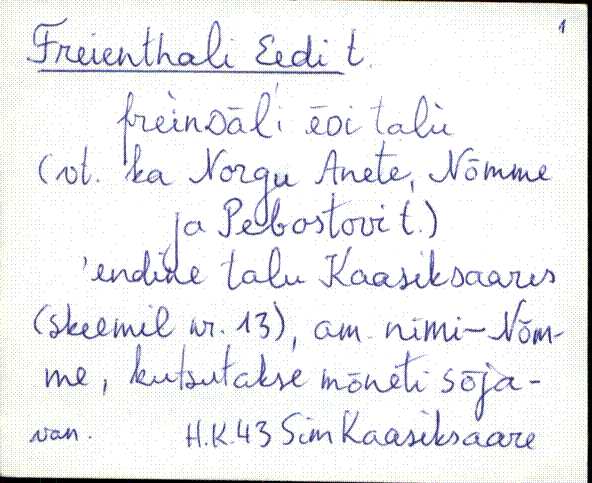 1
Freienthali Eedi t.
frèinᴅāl'i ēᴅi talù
(vt. ka Norgu Anete, Nõmme
ja Pebostovi t.)
'endine talu Kaasiksaares
(skeemil nr. 13), am. nimi - Nõm-
me, kutsutakse mõneti sõja-
van. H.K.43 Sim Kaasiksaare